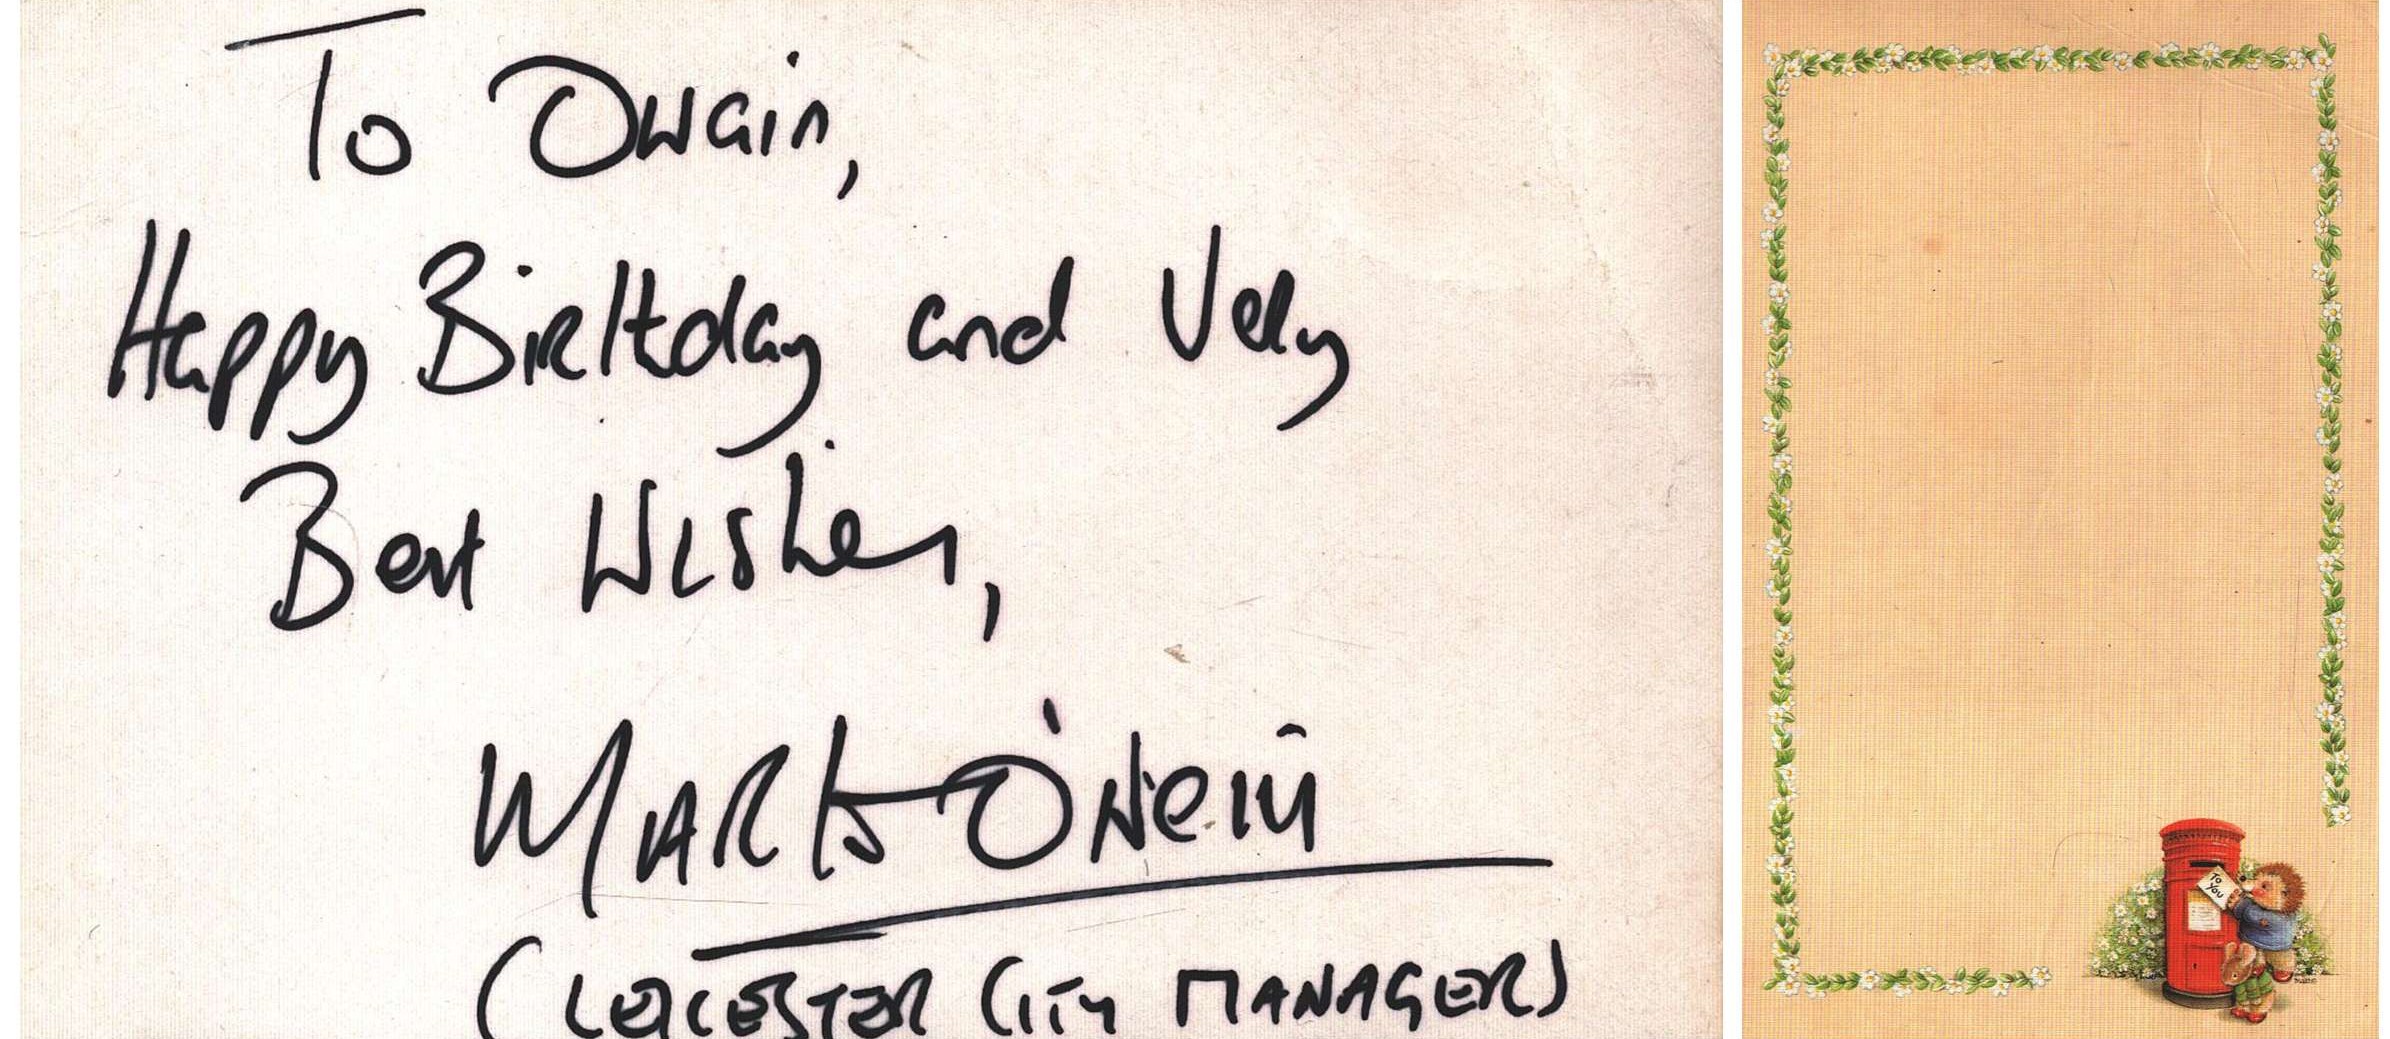 To Owain,
Happy Birthday and Very
Best Wishes,
Martin O'Neill
(LEICESTER CITY MANAGER)
TO
YOU